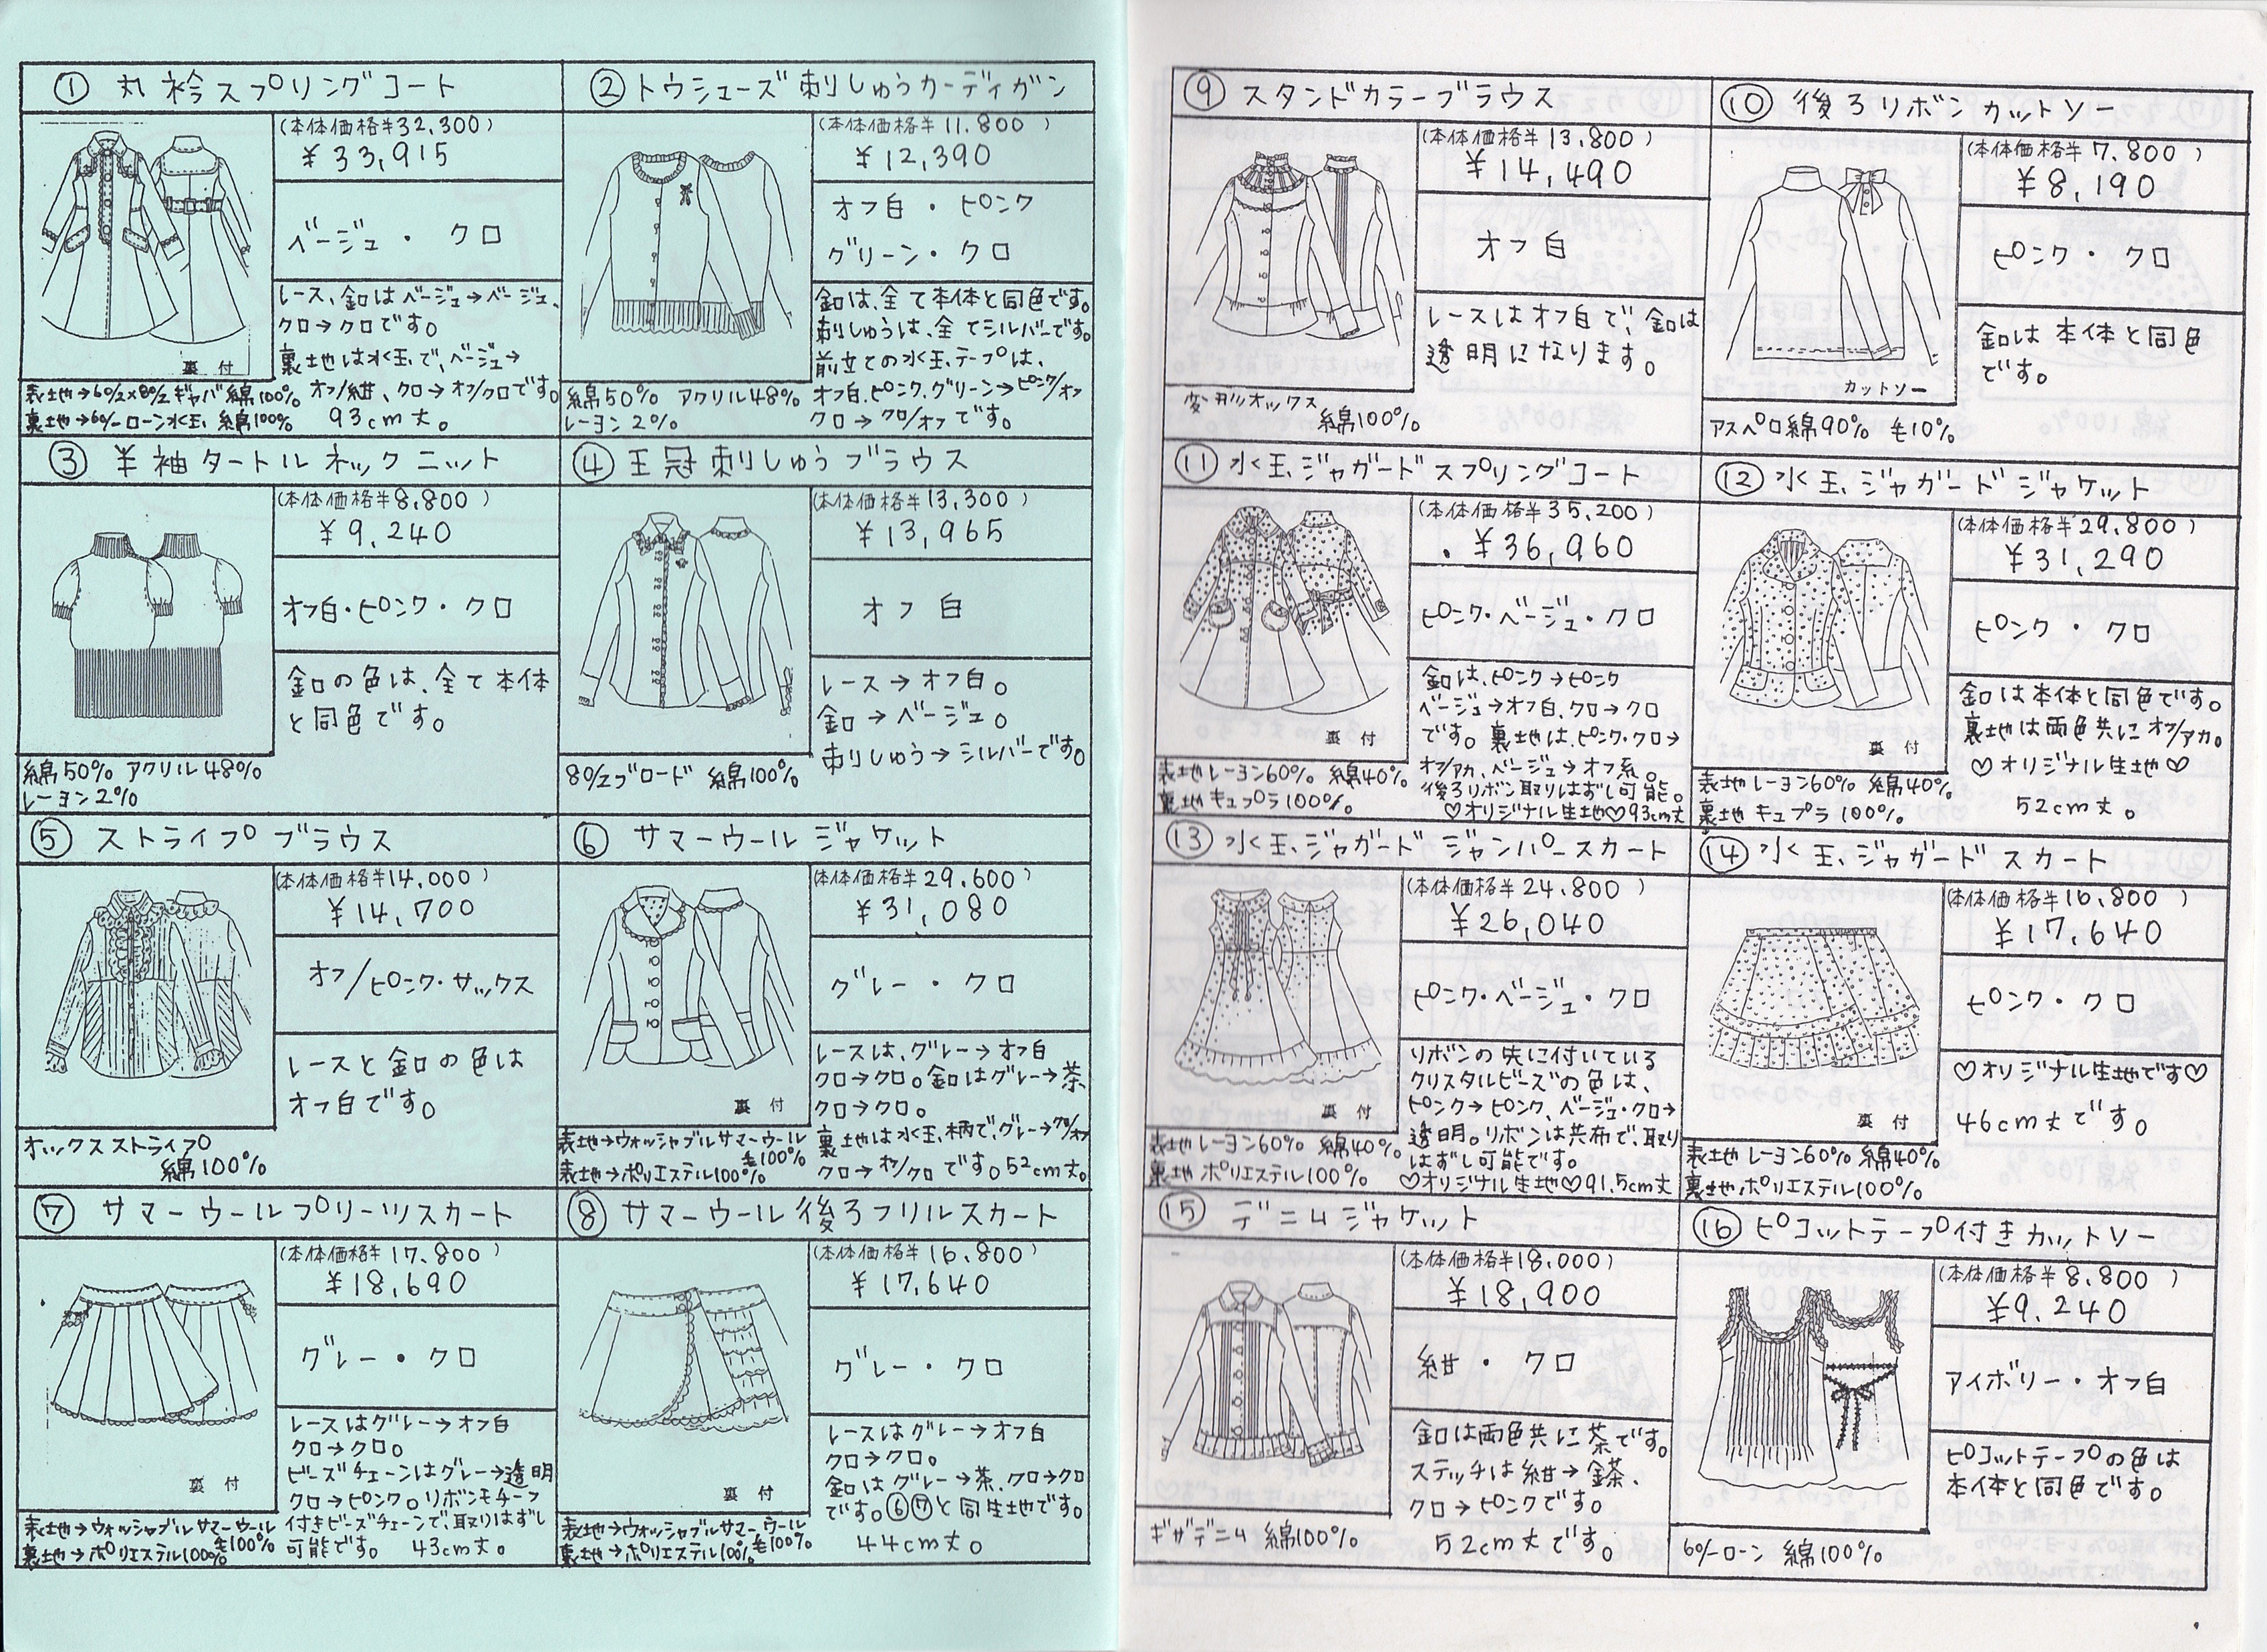 ① 丸衿スプリングコート
(本体価格¥32,300)
¥33,915
ベージュ・クロ
レース、釦はベージュ→ベージュ、
クロ→クロです。
裏地は水玉で、ベージュ→
オフ/紺、クロ→オフ/クロです。
93cm丈。
裏付
表地→60/2×80/2ギャバ 綿100%
裏地→60/-ローン水玉 綿100%
② トウシューズ刺しゅうカーディガン
(本体価格¥11,800)
¥12,390
オフ白・ピンク
グリーン・クロ
釦は、全て本体と同色です。
刺しゅうは、全てシルバーです。
前立ての水玉テープは、
オフ白、ピンク、グリーン→ピンク/オフ
クロ→クロ/オフです。
綿50% アクリル48%
レーヨン2%
③ 半袖タートルネックニット
(本体価格¥8,800)
¥9,240
オフ白・ピンク・クロ
釦の色は、全て本体
と同色です。
綿50% アクリル48%
レーヨン2%
④ 王冠刺しゅうブラウス
(本体価格¥13,300)
¥13,965
オフ白
レース→オフ白。
釦→ベージュ。
刺しゅう→シルバーです。
80/2ブロード 綿100%
⑤ ストライプブラウス
(本体価格¥14,000)
¥14,700
オフ/ピンク・サックス
レースと釦の色は
オフ白です。
オックスストライプ
綿100%
⑥ サマーウールジャケット
(本体価格¥29,600)
¥31,080
グレー・クロ
レースは、グレー→オフ白
クロ→クロ。釦はグレー→茶
クロ→クロ。
裏地は水玉柄で、グレー→クロ/オフ
クロ→オフ/クロです。52cm丈。
裏付
表地→ウォッシャブルサマーウール
毛100%
表地→ポリエステル100%
⑦ サマーウールプリーツスカート
(本体価格¥17,800)
¥18,690
グレー・クロ
レースはグレー→オフ白
クロ→クロ。
ビーズチェーンはグレー→透明
クロ→ピンク。リボンモチーフ
付きビーズチェーンで、取りはずし
可能です。 43cm丈。
裏付
表地→ウォッシャブルサマーウール
毛100%
裏地→ポリエステル100%
⑧ サマーウール後ろフリルスカート
(本体価格¥16,800)
¥17,640
グレー・クロ
レースはグレー→オフ白
クロ→クロ。
釦はグレー→茶、クロ→クロ
です。⑥⑦と同生地です。
44cm丈。
裏付
表地→ウォッシャブルサマーウール
毛100%
裏地→ポリエステル100%
⑨ スタンドカラーブラウス
(本体価格¥13,800)
¥14,490
オフ白
レースはオフ白で、釦は
透明になります。
変形オックス
綿100%
⑩ 後ろリボンカットソー
(本体価格¥7,800)
¥8,190
ピンク・クロ
釦は本体と同色
です。
カットソー
アスペロ綿90% 毛10%
⑪ 水玉ジャガードスプリングコート
(本体価格¥35,200)
¥36,960
ピンク・ベージュ・クロ
釦は、ピンク→ピンク
ベージュ→オフ白、クロ→クロ
です。裏地は、ピンク・クロ→
オフ/アカ、ベージュ→オフ系。
後ろリボン取りはずし可能。
♡オリジナル生地♡93cm丈
裏付
表地 レーヨン60% 綿40%
裏地 キュプラ100%
⑫ 水玉ジャガードジャケット
(本体価格¥29,800)
¥31,290
ピンク・クロ
釦は本体と同色です。
裏地は両色共にオフ/アカ。
♡オリジナル生地♡
52cm丈。
裏付
表地 レーヨン60% 綿40%
裏地 キュプラ100%
⑬ 水玉ジャガードジャンパースカート
(本体価格¥24,800)
¥26,040
ピンク・ベージュ・クロ
リボンの先に付いている
クリスタルビーズの色は、
ピンク→ピンク、ベージュ・クロ→
透明。リボンは共布で、取り
はずし可能です。
♡オリジナル生地♡91.5cm丈
裏付
表地 レーヨン60% 綿40%
裏地 ポリエステル100%
⑭ 水玉ジャガードスカート
(本体価格¥16,800)
¥17,640
ピンク・クロ
♡オリジナル生地です♡
46cm丈です。
裏付
表地 レーヨン60% 綿40%
裏地 ポリエステル100%
⑮ デニムジャケット
(本体価格¥18,000)
¥18,900
紺・クロ
釦は両色共に茶です。
ステッチは紺→金茶、
クロ→ピンクです。
52cm丈です。
ギザデニム 綿100%
⑯ ピコットテープ付きカットソー
(本体価格¥8,800)
¥9,240
アイボリー・オフ白
ピコットテープの色は
本体と同色です。
60/-ローン 綿100%